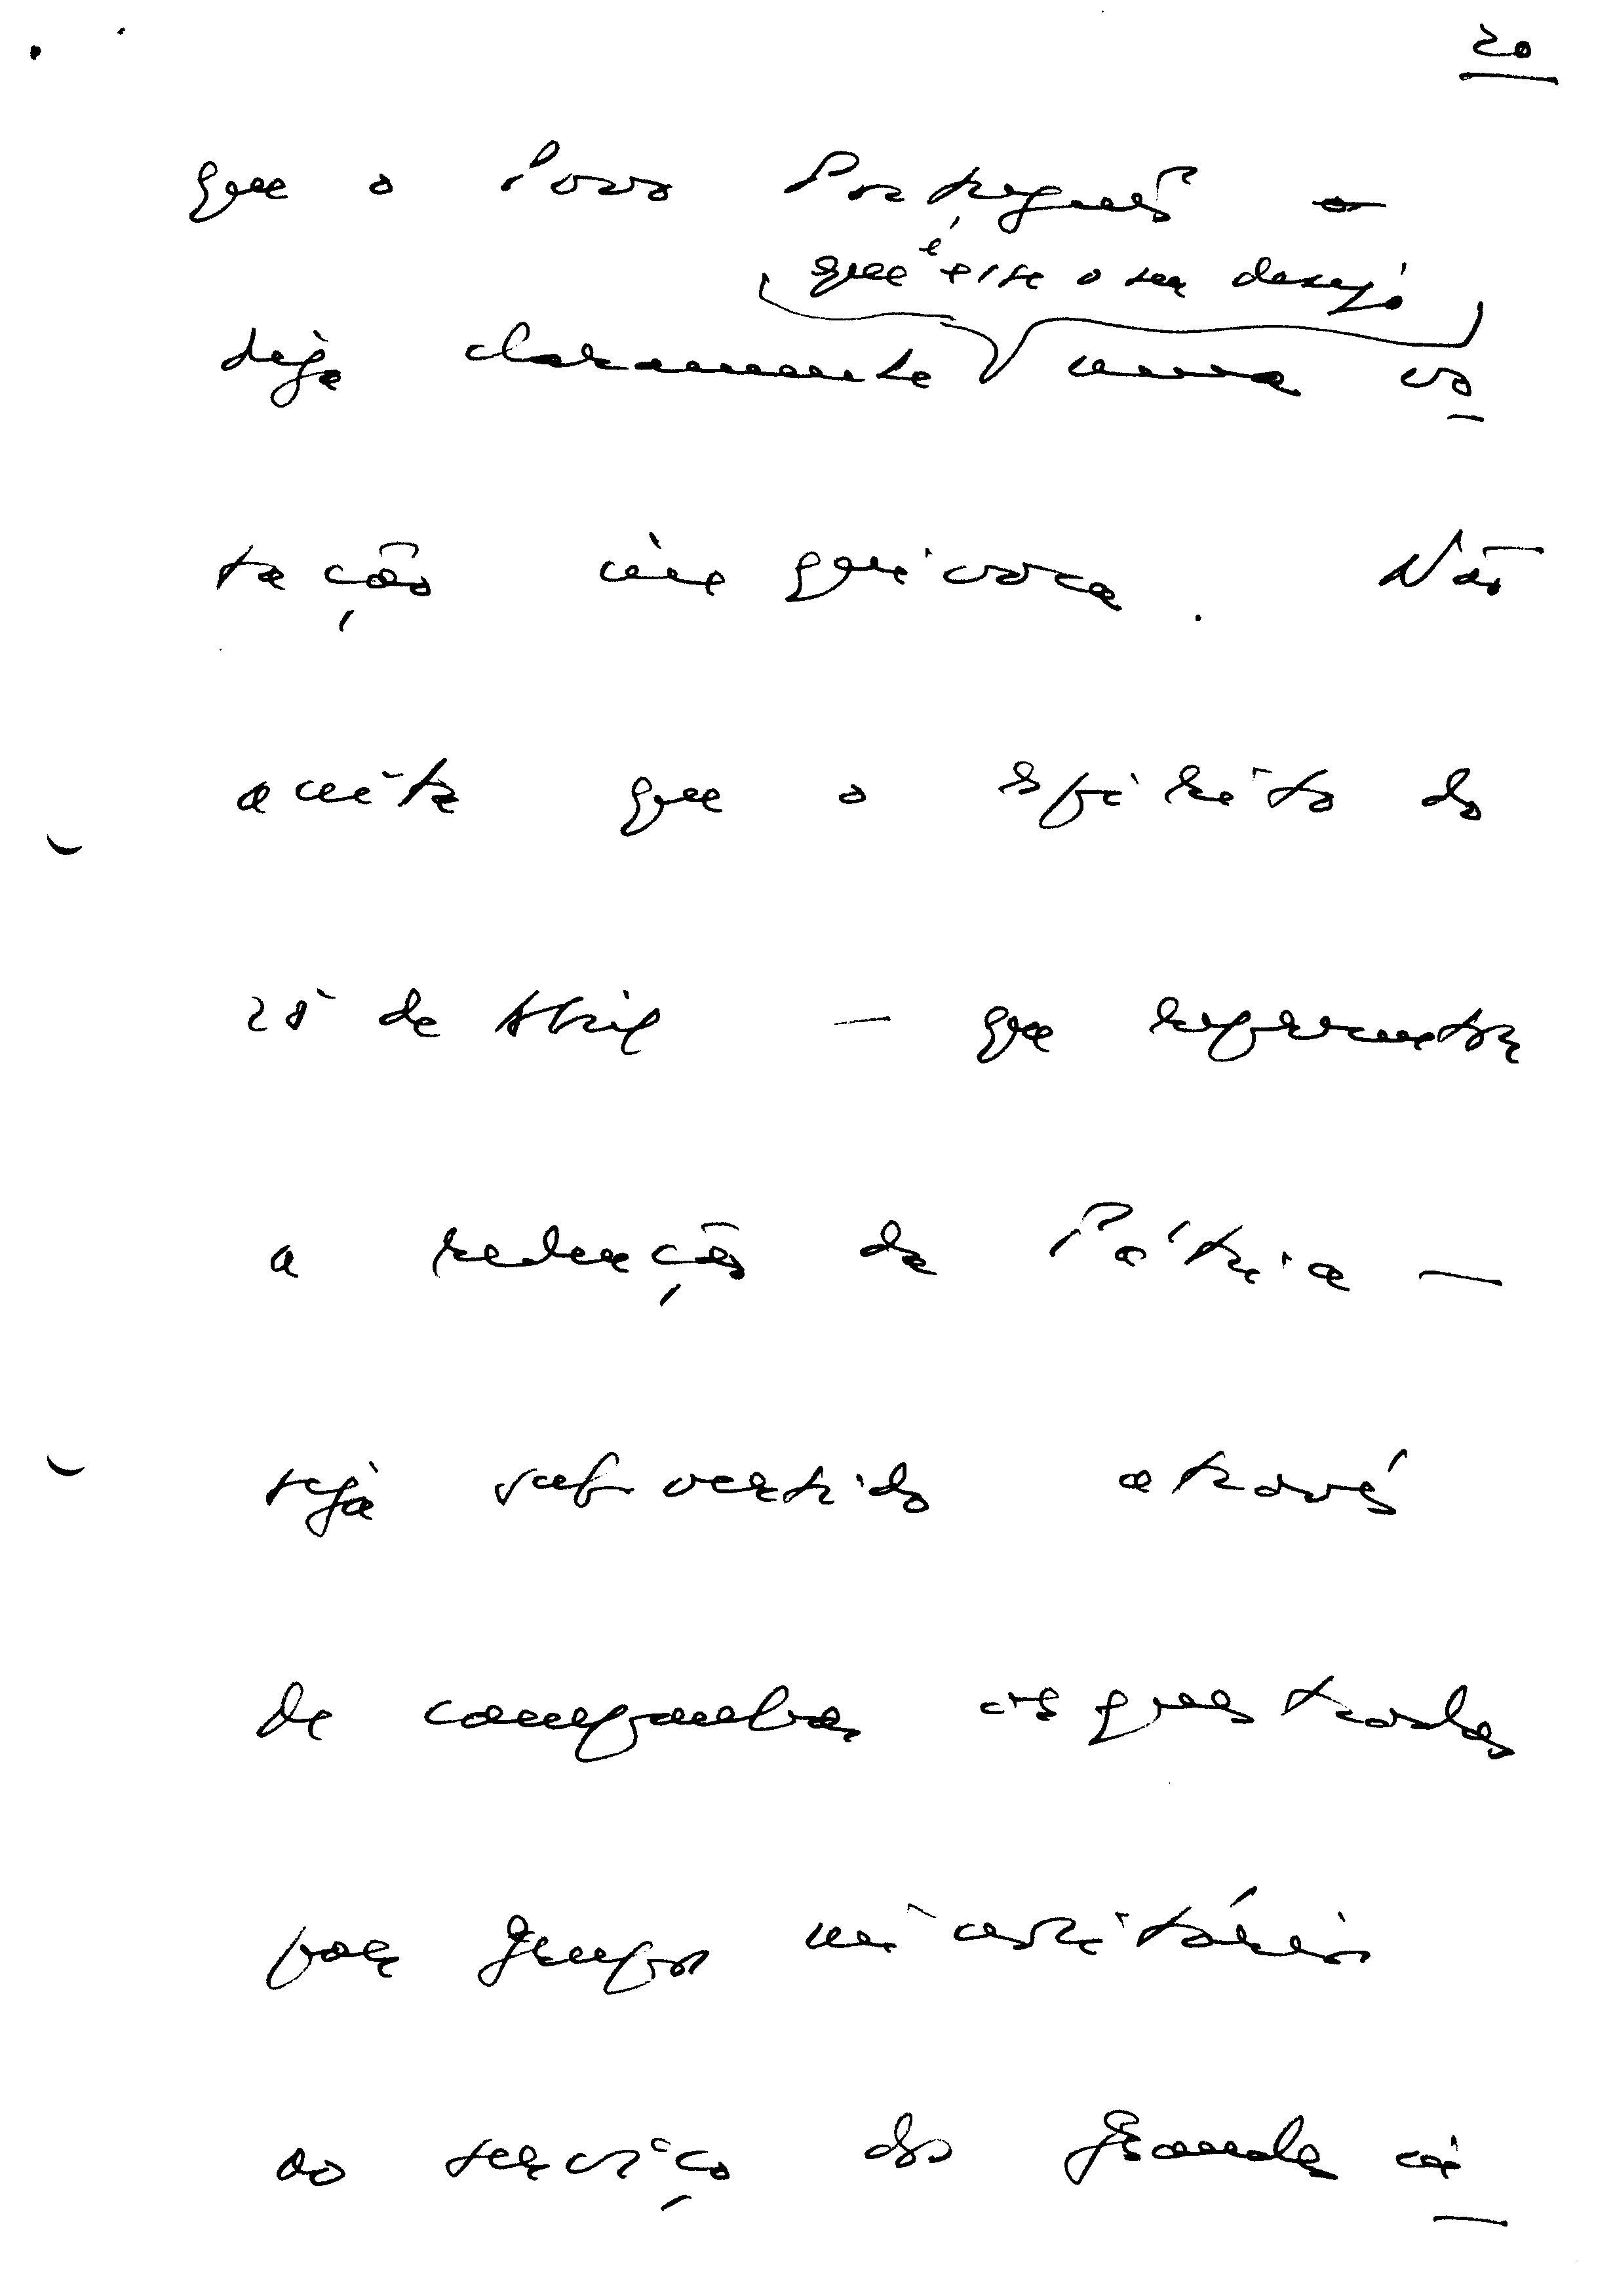 20
que o Povo Português o
que é esse o seu desejo
diga claramente numa vo
tação inequívoca. Não
aceita que o espírito do
25 de Abril — que representa
a redenção da Pátria —
seja subvertido através
de campanhas orquestradas
por grupos minoritários
ao serviço dos grandes in